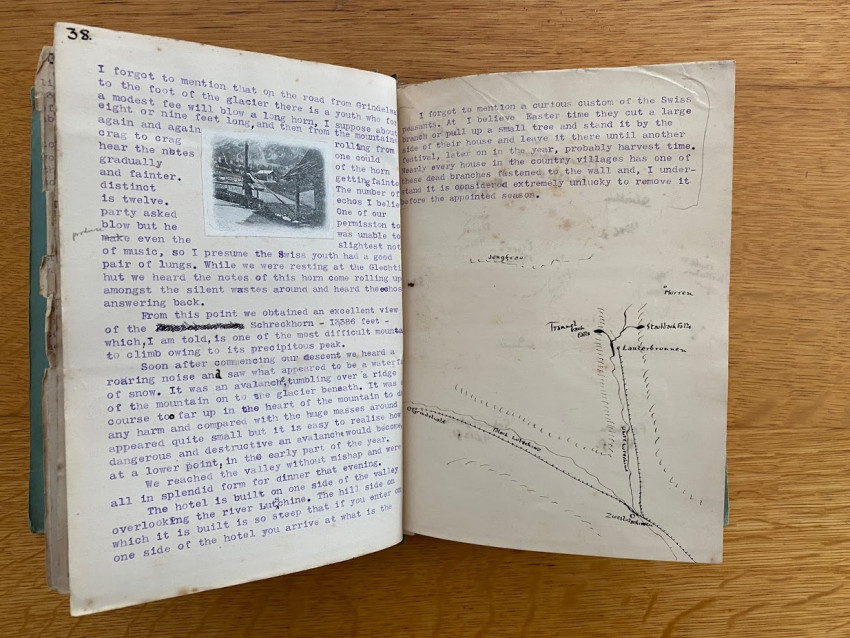 38.
I forgot to mention that on the road from Grindelw
to the foot of the glacier there is a youth who for
a modest fee will blow a long horn, I suppose about
eight or nine feet long, and then from the mountains
again and again rolling from
crag to crag one could
hear the notes of the horn
gradually getting fainte
and fainter. The number of
distinct echos I belie
is twelve. One of our
party asked permission to
blow but he was unable to
produce
make even the slightest not
of music, so I presume the Swiss youth had a good
pair of lungs. While we were resting at the Glechti
hut we heard the notes of this horn come rolling up
amongst the silent wastes around and heard the echos
answering back.
From this point we obtained an excellent view
of the Schreckhorn - 13386 feet -
which, I am told, is one of the most difficult mounta
to climb owing to its precipitous peak.
Soon after commencing our descent we heard a
roaring noise and saw what appeared to be a waterf
of snow. It was an avalanche, tumbling over a ridge
of the mountain on to the glacier beneath. It was
course too far up in the heart of the mountain to d
any harm and compared with the huge masses around
appeared quite small but it is easy to realise how
dangerous and destructive an avalanche would become
at a lower point, in the early part of the year.
We reached the valley without mishap and were
all in splendid form for dinner that evening.
The hotel is built on one side of the valley
overlooking the river Lutschine. The hill side on
which it is built is so steep that if you enter on
one side of the hotel you arrive at what is the
I forgot to mention a curious custom of the Swiss
peasants. At I believe Easter time they cut a large
branch or pull up a small tree and stand it by the
side of their house and leave it there until another
festival, later on in the year, probably harvest time.
Nearly every house in the country villages has one of
these dead branches fastened to the wall and, I under-
stand it is considered extremely unlucky to remove it
before the appointed season.
Jungfrau
Murren
Trummelbach
Falls
Staubbach Falls
Lauterbrunnen
Grindelwald
Black Lutschine
White Lutschine
Zweilutschinen